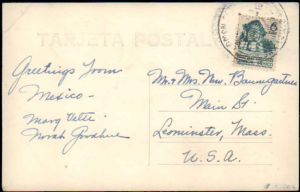 TARJETA POSTAL
Greetings from
Mexico -
Mary
Norah
Mr + Mrs. Wm. Baumgartner
Main St.
Leominster, Mass.
U.S.A.